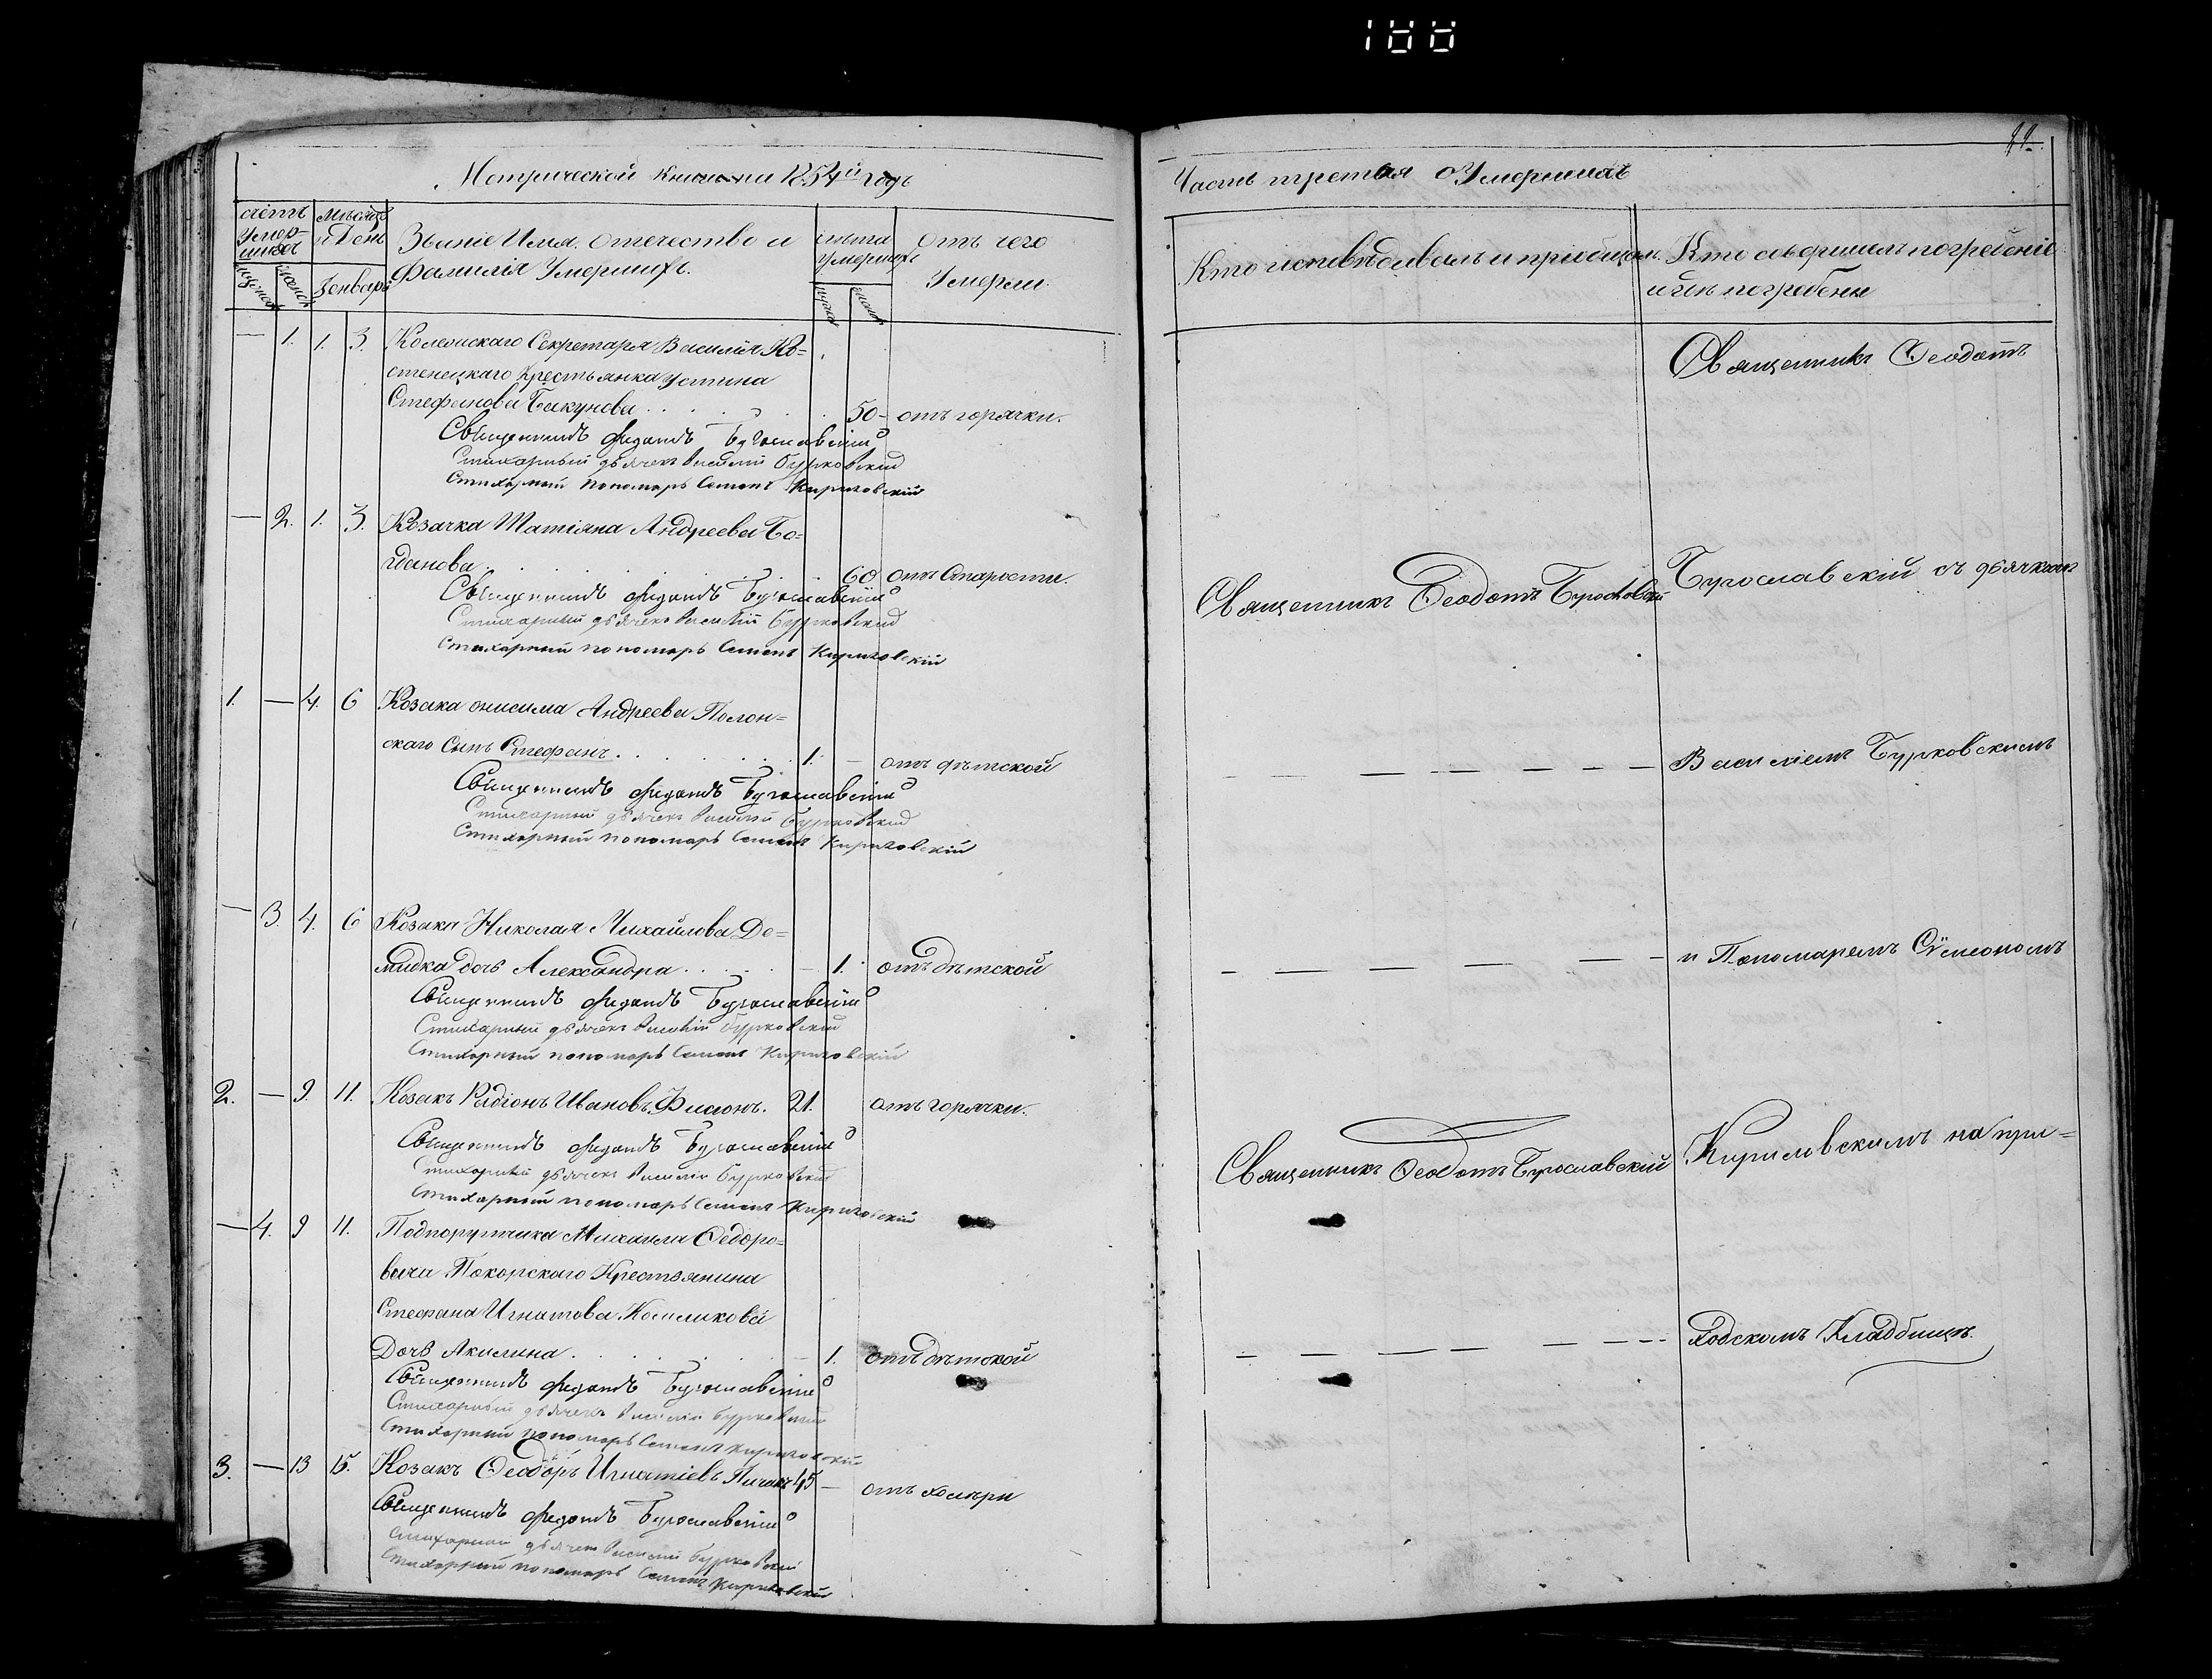 188
Метрической книги на 1854й годъ
счетъ умер-шихъ
Мѣсяцъ и День
Званіе Имя. отечество и
Фамилія Умершихъ.
лѣта умершихъ
отъ чего
Умерли.
Генваря
— 1. 1. 3. Колежскаго Секретаря Василія Ко=
стенецкаго Крестьянка Устина
Стефанова Бакунова . . . . . 50 - отъ горячки.
Священникъ Федотъ Бугославскій
Стихарный дьячекъ Василій Бурковский
Стихарный пономарь Семенъ Кириловскій
— 2. 1. 3. Козачка Татіяна Андреева Бо=
гданова . . . . . 60 отъ Старости.
Священникъ Федотъ Бугославскій
Стихарный дьячекъ Василій Бурковский
Стихарный пономарь Семенъ Кириловскій
1. — 4. 6 Козака Онисима Андреева Полон=
скаго Сынъ Стефанъ . . . . . 1. — отъ дѣтской
Священникъ Федотъ Бугославскій
Стихарный дьячекъ Василій Бурковский
Стихарный пономарь Семенъ Кириловскій
— 3. 4. 6 Козака Николая Михайлова Де=
мидка дочь Александра . . . . — 1. отъ дѣтской
Священникъ Федотъ Бугославскій
Стихарный дьячекъ Василій Бурковский
Стихарный пономарь Семенъ Кириловскій
2. — 9. 11. Козакъ Радіонъ Ивановъ 21. отъ горячки.
Священникъ Федотъ Бугославскій
Стихарный дьячекъ Василій Бурковский
Стихарный пономарь Семенъ Кириловскій
— 4. 9 11. Подпоручика Михаила Ѳедоро=
вича Покорскаго Крестьянина
Стефана Игнатова
Дочь Акилина . . . . . — 1. отъ дѣтской
Священникъ Федотъ Бугославскій
Стихарный дьячекъ Василій Бурковский
Стихарный пономарь Семенъ Кириловскій
3. — 13 15. Козакъ Ѳеодоръ Игнатіевъ 45 — отъ холеры
Священникъ Федотъ Бугославскій
Стихарный дьячекъ Василій Бурковский
Стихарный пономарь Семенъ Кириловскій
Часть третья о Умершихъ
Кто исповѣдывалъ и пріобщалъ.
Кто совершилъ погребеніе
и гдѣ погребены
Священникъ Ѳеодотъ
Священникъ Ѳеодотъ Бугославскій
Бугославскій съ дьячкомъ
— — — — — — — Василіемъ Бурковскимъ
— — — — — — и Пономаремъ Сѵмеономъ
Священникъ Ѳеодотъ Бугославскій
Кириловскимъ на при=
— — — — — — ходскомъ Кладбищѣ.